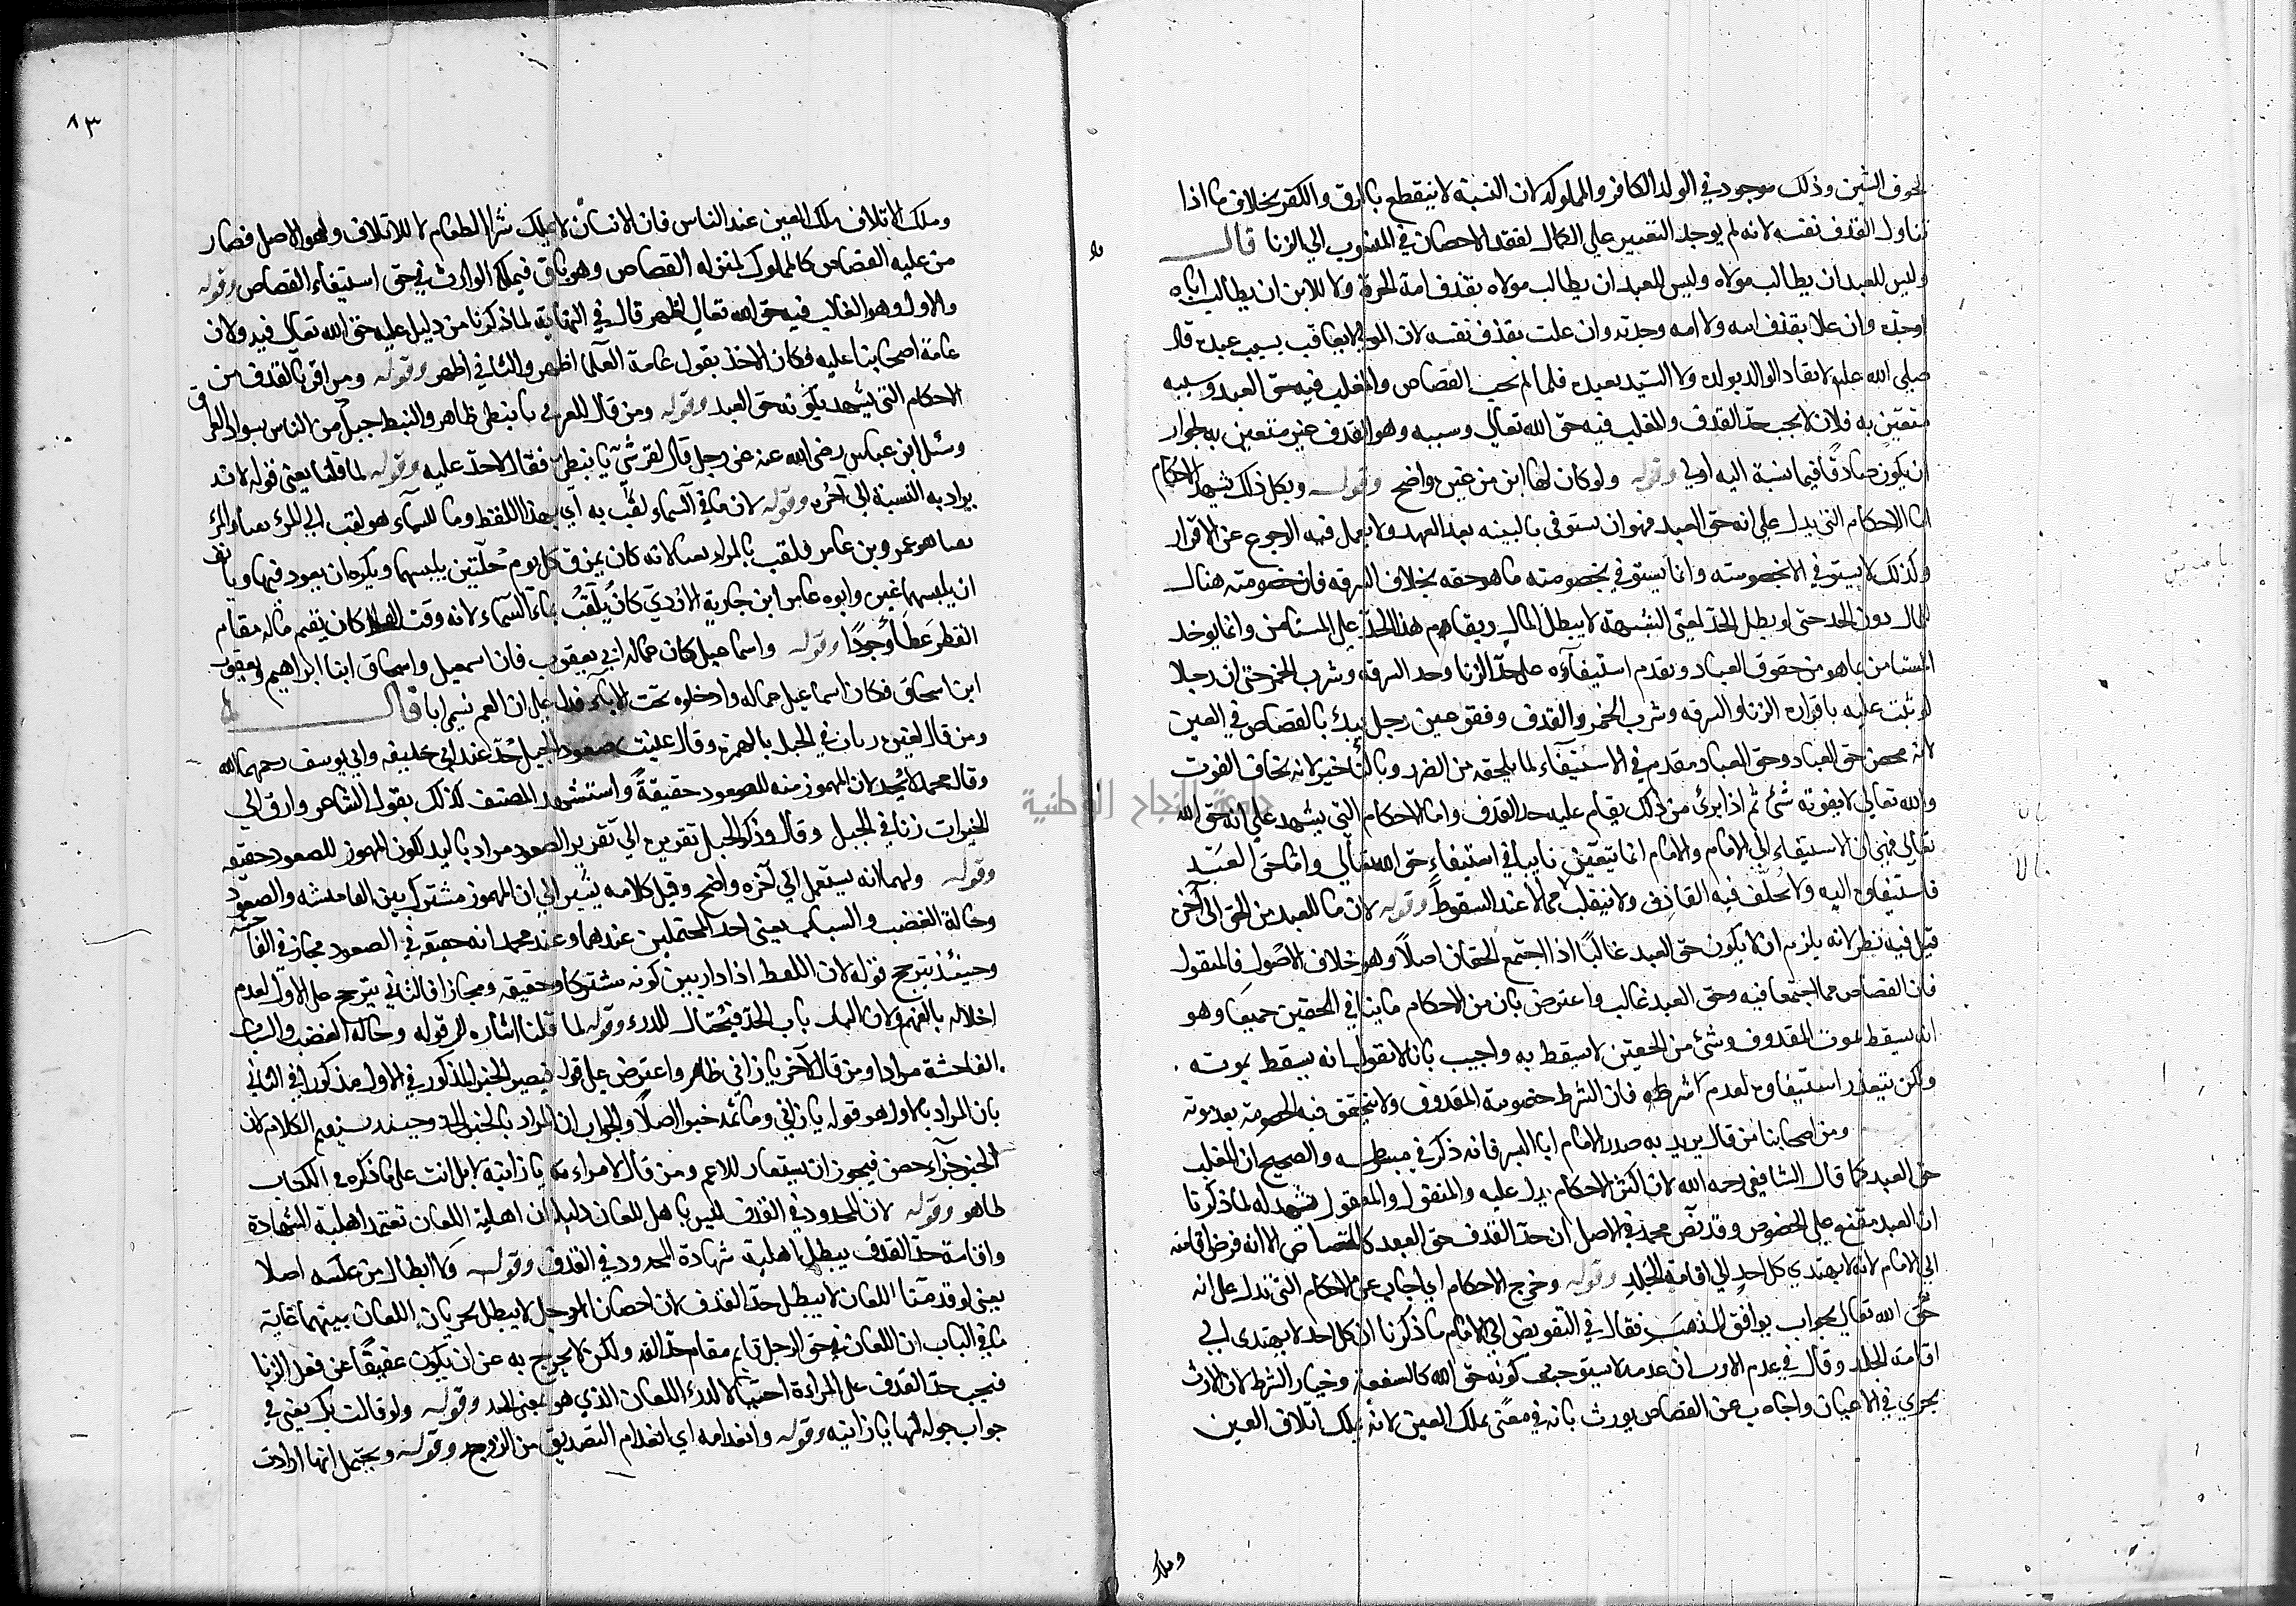 لحوق الشين وذلك موجود في الولد الكافر والمملوك لان النسبة لا ينقطع بالرق والكفر بخلاف ما اذا
تناول القذف نفسه لانه لم يوجد التعيير على الكمال لفقد الاحصان في المنسوب الي الزنا قال
وليس للعبد ان يطالب مولاه وليس للعبد ان يطالب مولاه بقذف امه الحرة ولا للابن ان يطالب اباه
اوجده وان علا بقذف امه ولا امه وجدته وان علت بقذف نفسه لان المولى لا يعاقب بسبب عبده قال
صلى الله عليه لا يقاد الوالد بولده ولا السيد بعبده فلما لم يجب القصاص والمغلب فيه حق العبد وسببه
متعين به فلان لا يجب حد القذف والمغلب فيه حق الله تعالى وسببه وهو القذف غير متعين به لجواز
ان يكون صادقا فيما نسبة اليه اولي وقوله ولو كان لها ابن من غيره واضح وقوله وبكل ذلك يشهد الاحكام
اما الاحكام التي يدل على انه حق العبد فهو ان يستوفى بالبينه بعد العهد ولا يعمل فيه الرجوع عن الاقرار
وكذلك لا يستوفي الا بخصومته وانما يستوفي بخصومته ما هو حقه بخلاف السرقه فان خصومته هناك
المال دون الحد حتى لو بطل الحد لمعنى الشبهة لا يبطل المال ويقام هذا الحد على المستامن وانما يوخذ
المستامن بما هو من حقوق العباد ويقدم استيفاؤه على حد الزنا وحد السرقة وشرب الخمر حتى ان رجلا
لو ثبت عليه باقراره الزنا والسرقه وشرب الخمر والقذف وفقئ عين رجل يبدئ بالقصاص في العين
لانه محض حق العباد وحق العباد مقدم في الاستيفاء لما يلحقه من الضرر وبالتأخير لانه يخاف الفوت
والله تعالى لا يفوته شئ ثم اذا برئ من ذلك يقام عليه حد القذف واما الاحكام التي يشهد على انه حق الله
تعالى فهي ان الاستيفاء الي الامام والامام انما يتعين نايبا في استيفاء حق الله تعالي واما حق العبد
فاستيفاوه اليه ولا يحلف فيه القاذف ولا ينقلب مالا عند السقوط وقوله لان ما للعبد من الحق الى آخره
قيل فيه نظر لانه يلزم ان لا يكون حق العبد غالبا اذا اجتمع الحقان اصلا وهو خلاف الاصول فالمنقول
فان القصاص مما اجتمعا فيه وحق العبد غالب واعترض بان من الاحكام ما ينافي الحقين جميعا وهو
انه يسقط بموت المقذوف وشئ من الحقين لا يسقط به واجيب بانا لا نقول انه يسقط بموته
ولكن يتعذر استيفاوه لعدم شرطه فان الشرط خصومة المقذوف ولا يتحقق فيه الخصومة بعد موته
ومن اصحابنا من قال يريد به صدر الامام ابا اليسر فانه ذكر في مبسوطه والصحيح ان المغلب
حق العبد كما قال الشافعي رحمه الله لان اكثر الاحكام يدل عليه والمنقول والمعقول يشهد له لما ذكرنا
ان العبد مقنع على الخصوص وقد نص محمد في الاصل ان حد القذف حق العبد كالقصاص الا انه فوض اقامته
الي الامام لانه لا يهتدي كل احد الي اقامة الجلد وقوله وخرج الاحكام اي اجاب عن الاحكام التي تدل على انه
حق الله تعالى بجواب يوافق المذهب فقال في التفويض الي الامام ما ذكرنا ان كل احد لا يهتدى الي
اقامة الجلد وقال في عدم الارث ان عدمه لا يستوجب كونه حق الله كالشفعة وخيار الشرط لان الارث
يجري في الاعيان واجاب عن القصاص يورث بانه في معنى ملك العين لانه يملك اتلاف العين
وملك
٨٣
وملك الاتلاف ملك العين عند الناس فان الانسان لا يملك شرا الطعام الا للاتلاف وهو الاصل فصار
من عليه القصاص كالمملوك لمن له القصاص وهو باق فيملكه الوارث في حق استيفاء القصاص وقوله
والاول وهو الغالب فيه حق الله تعالى اظهر قال في النهاية لما ذكرنا من دليل غلبه حق الله تعالى فيه ولان
عامة اصحابنا عليه فكان الاخذ بقول عامة العلما اظهر والثاني اظهر وقوله ومن اقر بالقذف من
الاحكام التي يشهد بكونه حق العبد وقوله ومن قال للعربي يا نبطي ظاهر والنبط جيل من الناس بسواد العراق
وسئل ابن عباس رضى الله عنه عن رجل قال لقرشي يا نبطي فقال لا حد عليه وقوله لما قلنا يعنى قوله لانه
يراد به النسبة الى آخره وقوله لان ماء السماء لقب به اي بهذا اللفظ وما السماء هو لقب ابي المرء بماء والمرء
بماء هو عمرو بن عامر فلقب بالمراد بماء لانه كان يمزق كل يوم حلتين يلبسهما ويكره ان يعود فيهما ويأنف
ان يلبسهما غيره وابوه عامر ابن جارية الازدي كان يلقب بماء السماء لانه وقت القحط كان يقيم ماله مقام
القطر عطا وجودا وقوله واسماعيل كان عما له اي يعقوب فان اسمعيل واسحاق ابنا ابراهيم ويعقوب
ابن اسحاق فكان اسماعيل عما له وادخلوه تحت الآباء فدل على ان العم يسمى ابا قال
ومن قال لغيره زنات في الجبل بالهمزة وقال عنيت صعود الجبل حد عند ابي حنيفه وابي يوسف رحمهما الله
وقال محمد لا يحد لان المهموز منه للصعود حقيقة واستشهد المصنف كذلك بقول الشاعر وارق الي
الخيرات زنا في الجبل وقال وذكر الجبل تقريره الي تقرير الصعود مراد باليد لكون المهموز للصعود حقيقه
وقوله ولهما انه يستعمل الي آخره واضح وقيل كلامه يشير الي ان المهموز مشترك بين الفاحشه والصعود
وحالة الغضب والسباب يعنى احد المحتملين عندهما وعند محمد انه حقيقه في الصعود مجاز في الفاحشه
وحينئذ يترجح قوله لان اللفظ اذا دار بين كونه مشتركا وحقيقه ومجازا فالثاني يترجح على الاول لعدم
اخلاله بالفهم ولان الباب باب الحد فيحتال للدرء وقوله لما قلنا اشاره الى قوله وحالة الغضب والسباب
الفاحشة مرادا ومن قال لآخر يا زاني ظاهر واعترض على قوله فيصير الخبر المذكور في الاول مذكورا في الثاني
بان المراد بالاول هو قوله يا زاني وما ثمه خبر اصلا والجواب ان المراد بالخبر الجزء وحينئذ يستقيم الكلام لان
الخبر جزء اخص فيجوز ان يستعار للاعم ومن قال لامراءته يا زانية لا بل انت على ما ذكره في الكتاب
ظاهر وقوله لان المحدود في القذف ليس باهل للعان دليله ان اهلية اللعان تعتمد اهلية الشهادة
واقامة حد القذف يبطل اهلية شهادة المحدود في القذف وقوله ولا ابطال من عكسه اصلا
يعنى لو قدمنا اللعان لا يبطل حد القذف لان احصان الرجل لا يبطل بجريان اللعان بينهما غاية
ما في الباب ان اللعان في حق الرجل قايم مقام حد القذف ولكن لا يخرج به عن ان يكون عفيفا عن فعل الزنا
فيجب حد القذف على المراءة احتيالا لدرء اللعان الذي هو بمعنى الحد وقوله ولو قالت بك يعنى في
جواب قوله لها يا زانيه وقوله وانعدامه اي انعدام التصديق من الزوج وقوله ويحتمل انها ارادت
جامعة النجاح الوطنية